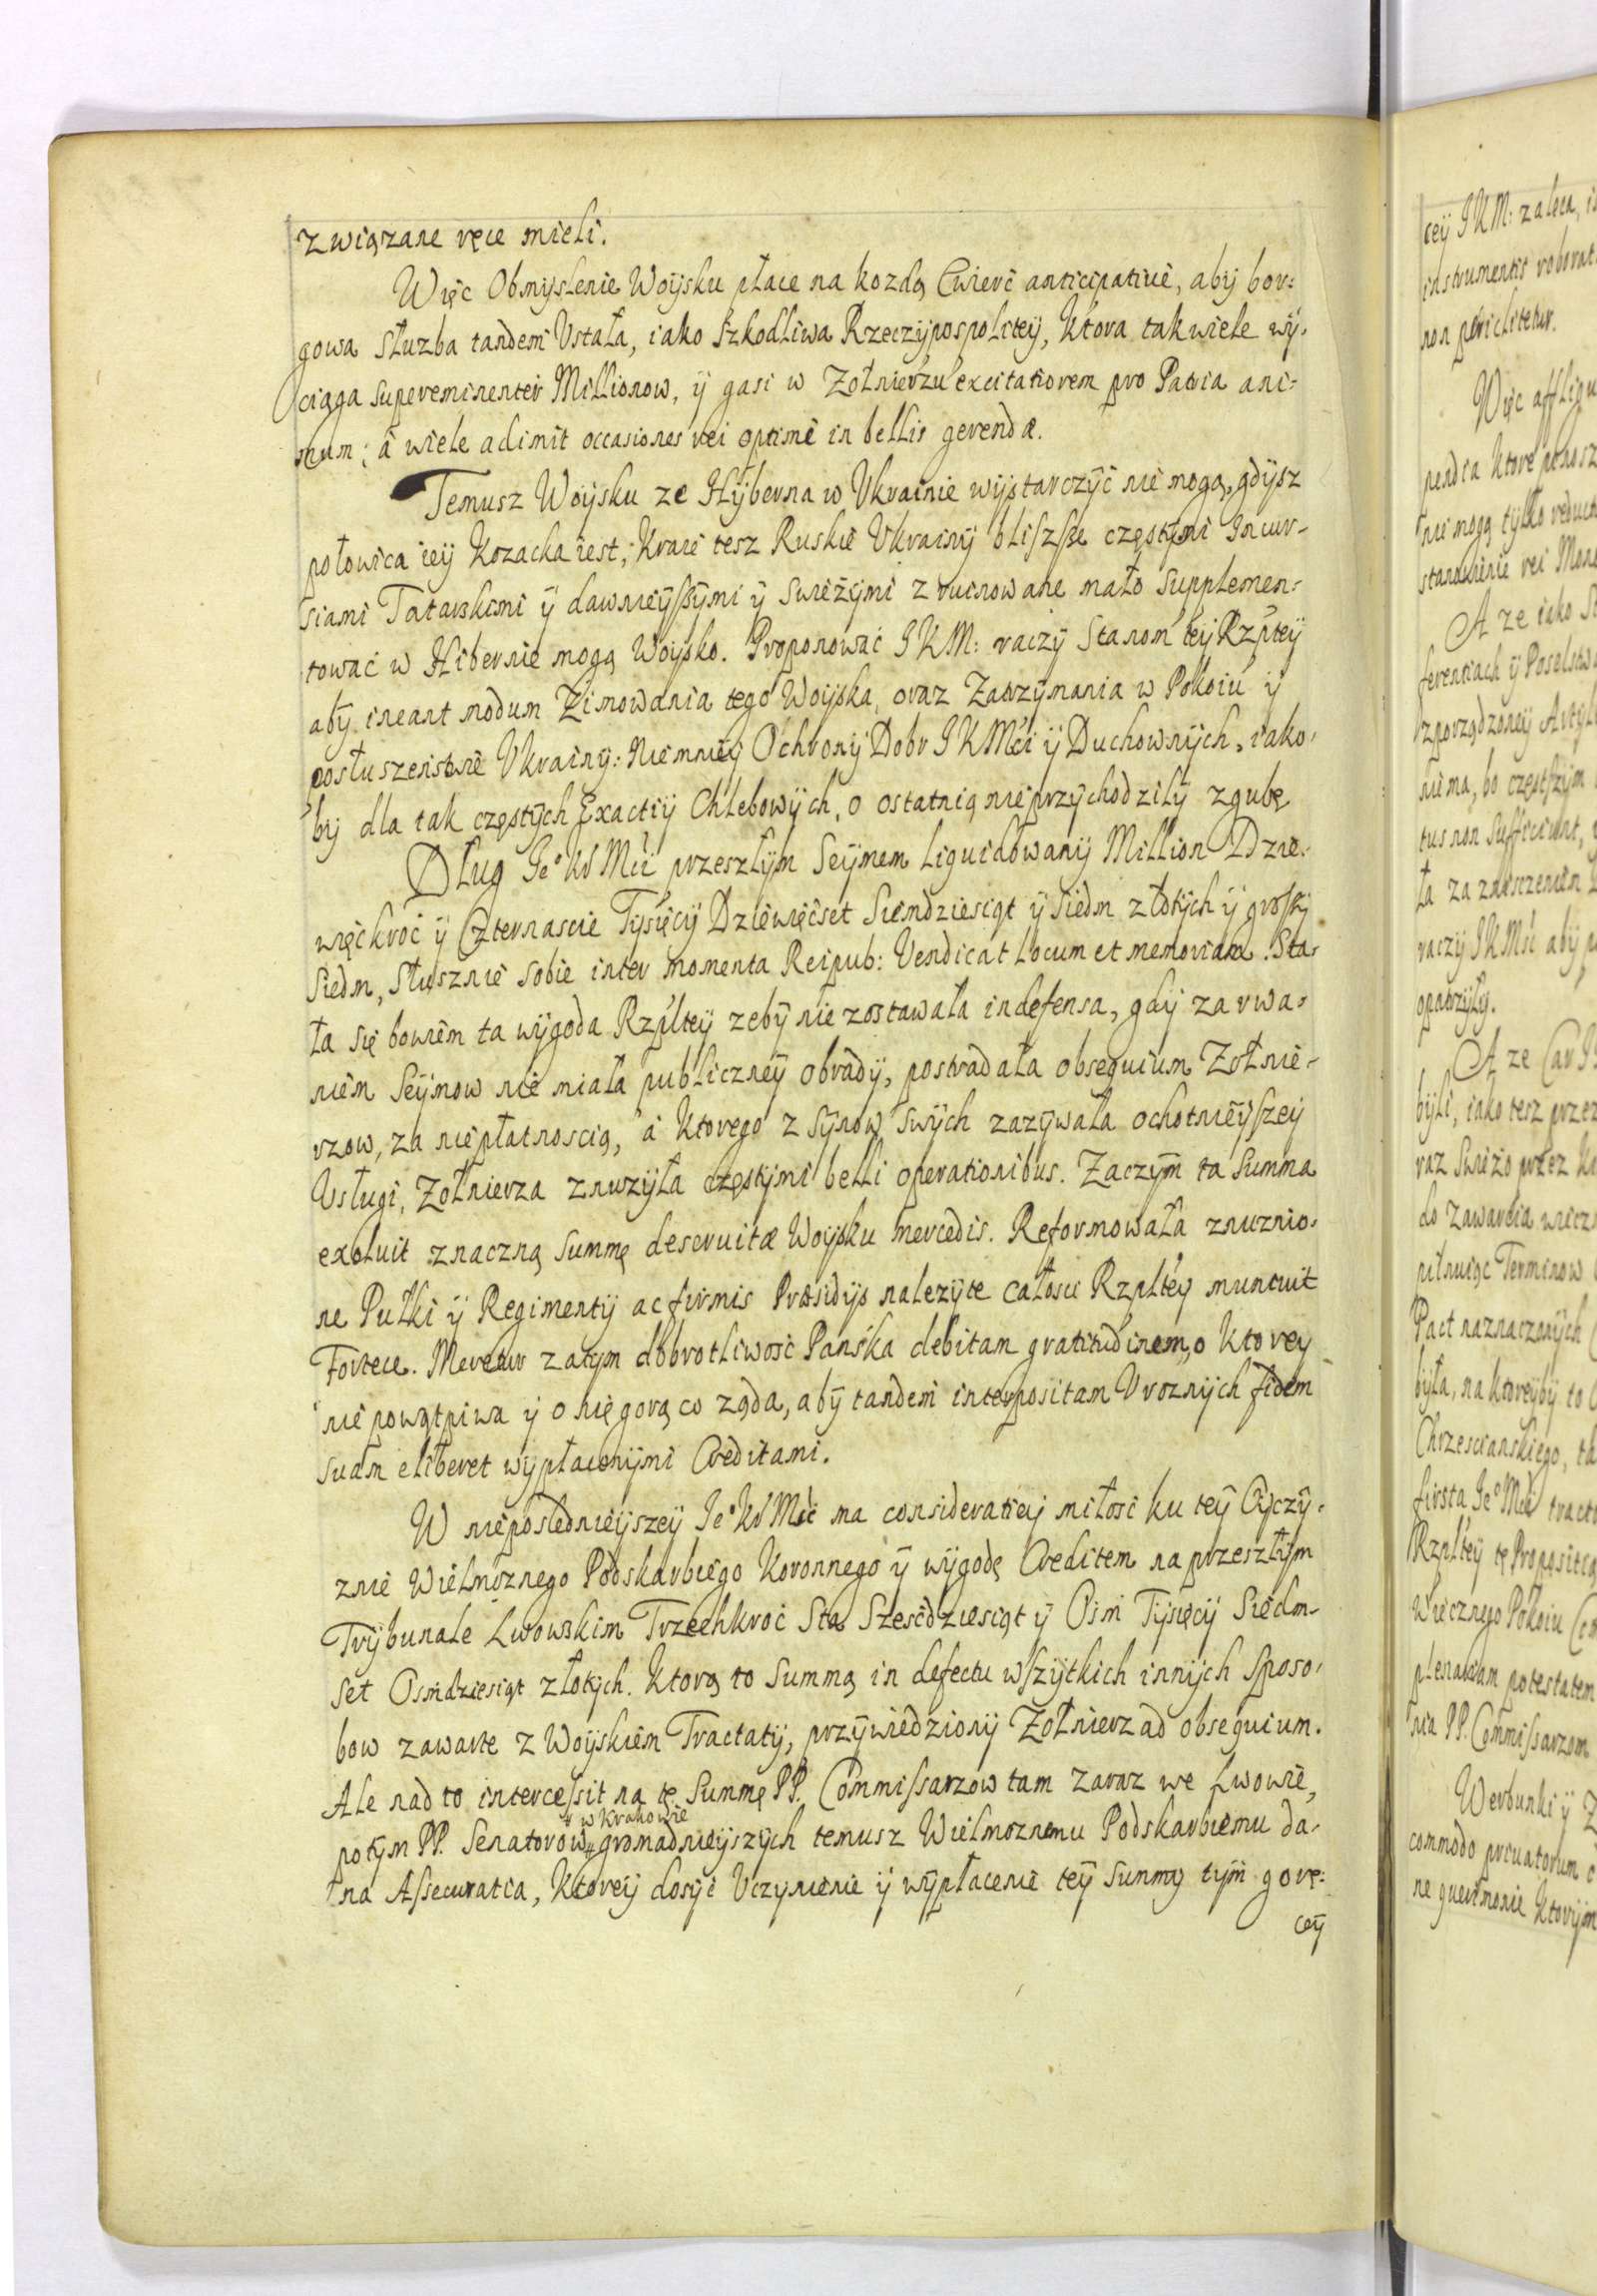 związane ręce mieli.
Więc Obmyslenie Woÿsku płace na kozdą Cwierć anticipativè, aby bor:
gowa służba tandem Vstała, iako szkodliwa Rzeczÿpospoliteÿ, Ktora tak wiele wÿ:
ciąga supereminenter Millionow, ÿ gasi w Zołnierzu excitatiorem pro Patria ani:
mum; á wiele adimit occasiones rei optimè in bellis gerendæ.
Temusz Woÿsku ze Hÿberna w Vkrainie wÿstarczÿć nie mogą, gdÿsz
połowica ieÿ Kozacka iest; Kraie tesz Ruskie Vkrainÿ bliſzſze częstÿmi Incur-
siami Tatarskimi ÿ dawnieÿſzÿmi ÿ swieżÿmi zruinowane mało supplemen:
tować w Hibernie mogą Woÿsko. Proponować IKM: raczÿ Stanom teÿ Rzpteÿ
abÿ ineant modum Zimowania tego Woÿska, oraz Zatrzÿmania w Pokoiu ÿ
posłuszenstwie Vkrainÿ: Niemnieÿ Ochronÿ Dobr IKMci ÿ Duchownÿch, iako
bÿ dla tak częstÿch Exactiÿ Chlebowÿch, o ostatnią nie przÿchodziłÿ zgubę
Dług Ieº KrMći przeszłÿm Seÿmem liquidowanÿ Million Dzie:
więćkroć ÿ Czternascie Tÿsięcÿ Dziewięćset Siemdziesiąt ÿ siedm złotÿch ÿ groſzÿ
siedm, słusznie sobie inter momenta Reipub: Vendicat locum et memoriam. Sta:
ła się bowiem ta wÿgoda Rzplteÿ zebÿ nie zostawała indefensa, gdÿ za rwa:
niem Seÿmow nie miała publiczneÿ obradÿ, postradała obsequium Zołnie-
rzow, za niepłatnoscią, á ktorego z sÿnow swÿch zazÿwała ochotnieÿſzeÿ
Vsługi, Zołnierza znuzÿła częstÿmi belli operationibus. Zaczÿm ta Summa
exoluit znaczną summę deservitæ Woÿsku mercedis. Reformowała znuznio:
ne Pułki ÿ Regimentÿ ac firmis Præsidÿs nalezÿte całosci Rzplteÿ munivit
Fortece. Meretur zatÿm dobrotliwość Pańska debitam gratitudinem, o ktoreÿ
nie powątpiwa ÿ o nię gorąco ząda, abÿ tandem interpositam Vroznÿch fidem
suam eliberet wÿpłaconÿmi Creditami.
W nieposlednieÿszeÿ Ieº KrMść ma consideratieÿ miłość ku teÿ Oÿczÿ:
znie Wielmoznego Podskarbiego Koronnego ÿ wÿgodę Creditem na przeszłÿm
Trÿbunale Lwowskim Trzechkroć Sta Szesćdziesiąt ÿ Osm Tÿsięcÿ Siedm-
set Osmdziesiąt złotÿch. Ktorą to summą in defectu wſzÿtkich innÿch sposo:
bow zawarte z Woÿskiem Tractatÿ, przÿwiedzionÿ Zołnierz ad obsequium.
Ale nad to interceſsit na tę Summę PP. Commiſsarzow tam zaraz we Lwowie,
w Krakowie
potÿm PP. Senatorow gromadnieÿszÿch temusz Wielmoznemu Podskarbiemu da:
na Aſsecuratia, Ktoreÿ dosÿć Vczÿnienie ÿ wÿpłacenie teÿ Summÿ tÿm gorę:
ceÿ
ceÿ IKM: zaleca,
instrumentis roborat
non periclitetur.
Więc
pendia ktore ponosz
nie mogą tÿlko reduct
stanowienie rei Mone
A ze iako
ferentiach ÿ Poselstw
zporządzoneÿ Artÿl
nie ma, bo częstſzÿm
tus non sufficiunt,
ła za zniesczeniem
raczÿ IKMść abÿ
opatrzÿłÿ.
A ze Car
bÿli, iako tesz przez
raz swiżo przez
do zawarcia wiecz
pilnuiąc Terminow
Pact naznaczonÿch
bÿła, na ktoreÿbÿ to
Chrzescianskiego, ta
Ieº Mći tract
Rzplteÿ tę Propositią
Wiecznego Pokoiu
plenariam potestatem
nia PP. Commiſsarzom
Werbunki ÿ
commodo privatorum
ne querimonie Ktorÿm